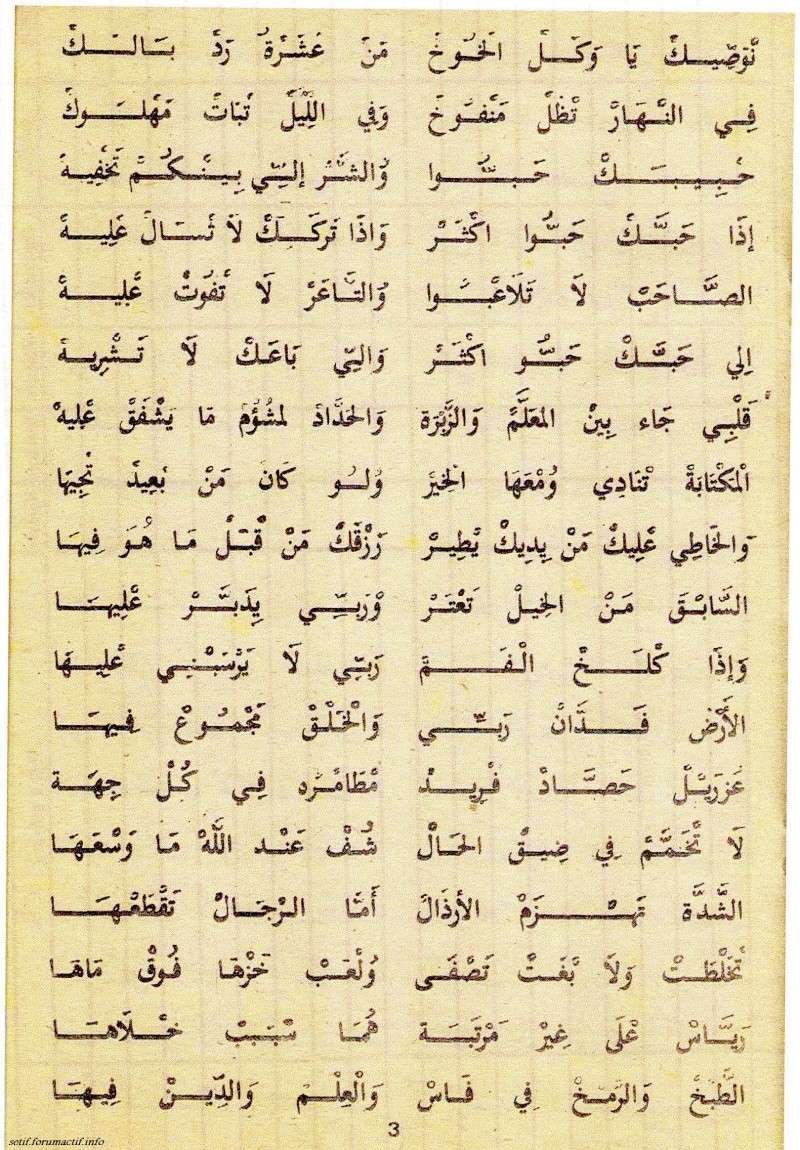 نْوَصِّيكْ يَا وَكَّلْ الخُوخْ مَنْ عَشْرَةْ رَدْ بَالَكْ
فِي النْهَارْ تْظَلْ مَنْفُوخْ وَفِي اللِّيلْ تْبَاتْ مَهْلُوكْ
حْبِيبَكْ حَبُّوا وُالشَّرْ إِللِّي بِينْكُمْ تَخْفِيهْ
إِذَا حَبَّكْ حَبُّوا اكْثَرْ وَاذَا تَركَكْ لَا تْسَالْ عَلِيهْ
الصَّاحَبْ لَا تَلَاعْبُوا وُالنَّاعَرْ لَا تْفُوتْ عْلِيهْ
إِلِي حَبَّكْ حَبُّو اكْثَرْ وَاللِّي بَاعَكْ لَا تَشْرِيهْ
قَلْبِي جَاء بِينْ المْعَلَّمْ وَالزَّبْرَة وَالحَدَّادْ لمشُؤُمْ مَا يَشْفَقْ عْلِيهْ
الْمَكْتَابَةْ تْنَادِي وُمْعَهَا الخِيرْ وُلُو كَانْ مَنْ بْعِيدْ تْجِيهَا
وَالخَاطِي عْلِيكْ مَنْ يِدِيكْ يْطِيرْ رَزْقَكْ مَنْ قْبَلْ مَا هُوَ فِيهَا
السَّابْقَ مَنْ الخِيلْ تَعْثَرْ وْرَبِّي يِدَبَّرْ عْلِيهَا
وَإِذَا كْلَخْ الْفَمْ رَبِّي لَا يَرْسَبْنِي عْلِيهَا
الأَرْضْ فَدَّانْ رَبِّي وَالْخَلْقْ مَجْمُوعْ فِيهَا
عَزرَيْلْ حَصَّادْ فْرِيدْ مْطَامْرُه فِي كُلْ جِهَة
لَا تْخَمَّمْ فِي ضِيقْ الحَالْ شُفْ عَنْد اللَّهْ مَا وَسْعَهَا
الشَّدَّة تَهْزَمْ الأَرذَالْ أَمَّا الرْجَالْ تَقْطَعْهَا
تْخَلْطَتْ وَلَا بْغَتْ تَصْفَى وُلْعَبْ خَزْهَا فُوقْ مَاهَا
رَيَّاسْ عْلَى غِيرْ مَرْتَبَة هُمَا سْبَبْ خْلَاهَا
الطَّبْخْ وَالرَمْخْ فِي فَاسْ وَالْعِلْمْ وَالدِّينْ فِيهَا
3
setif.forumactif.info